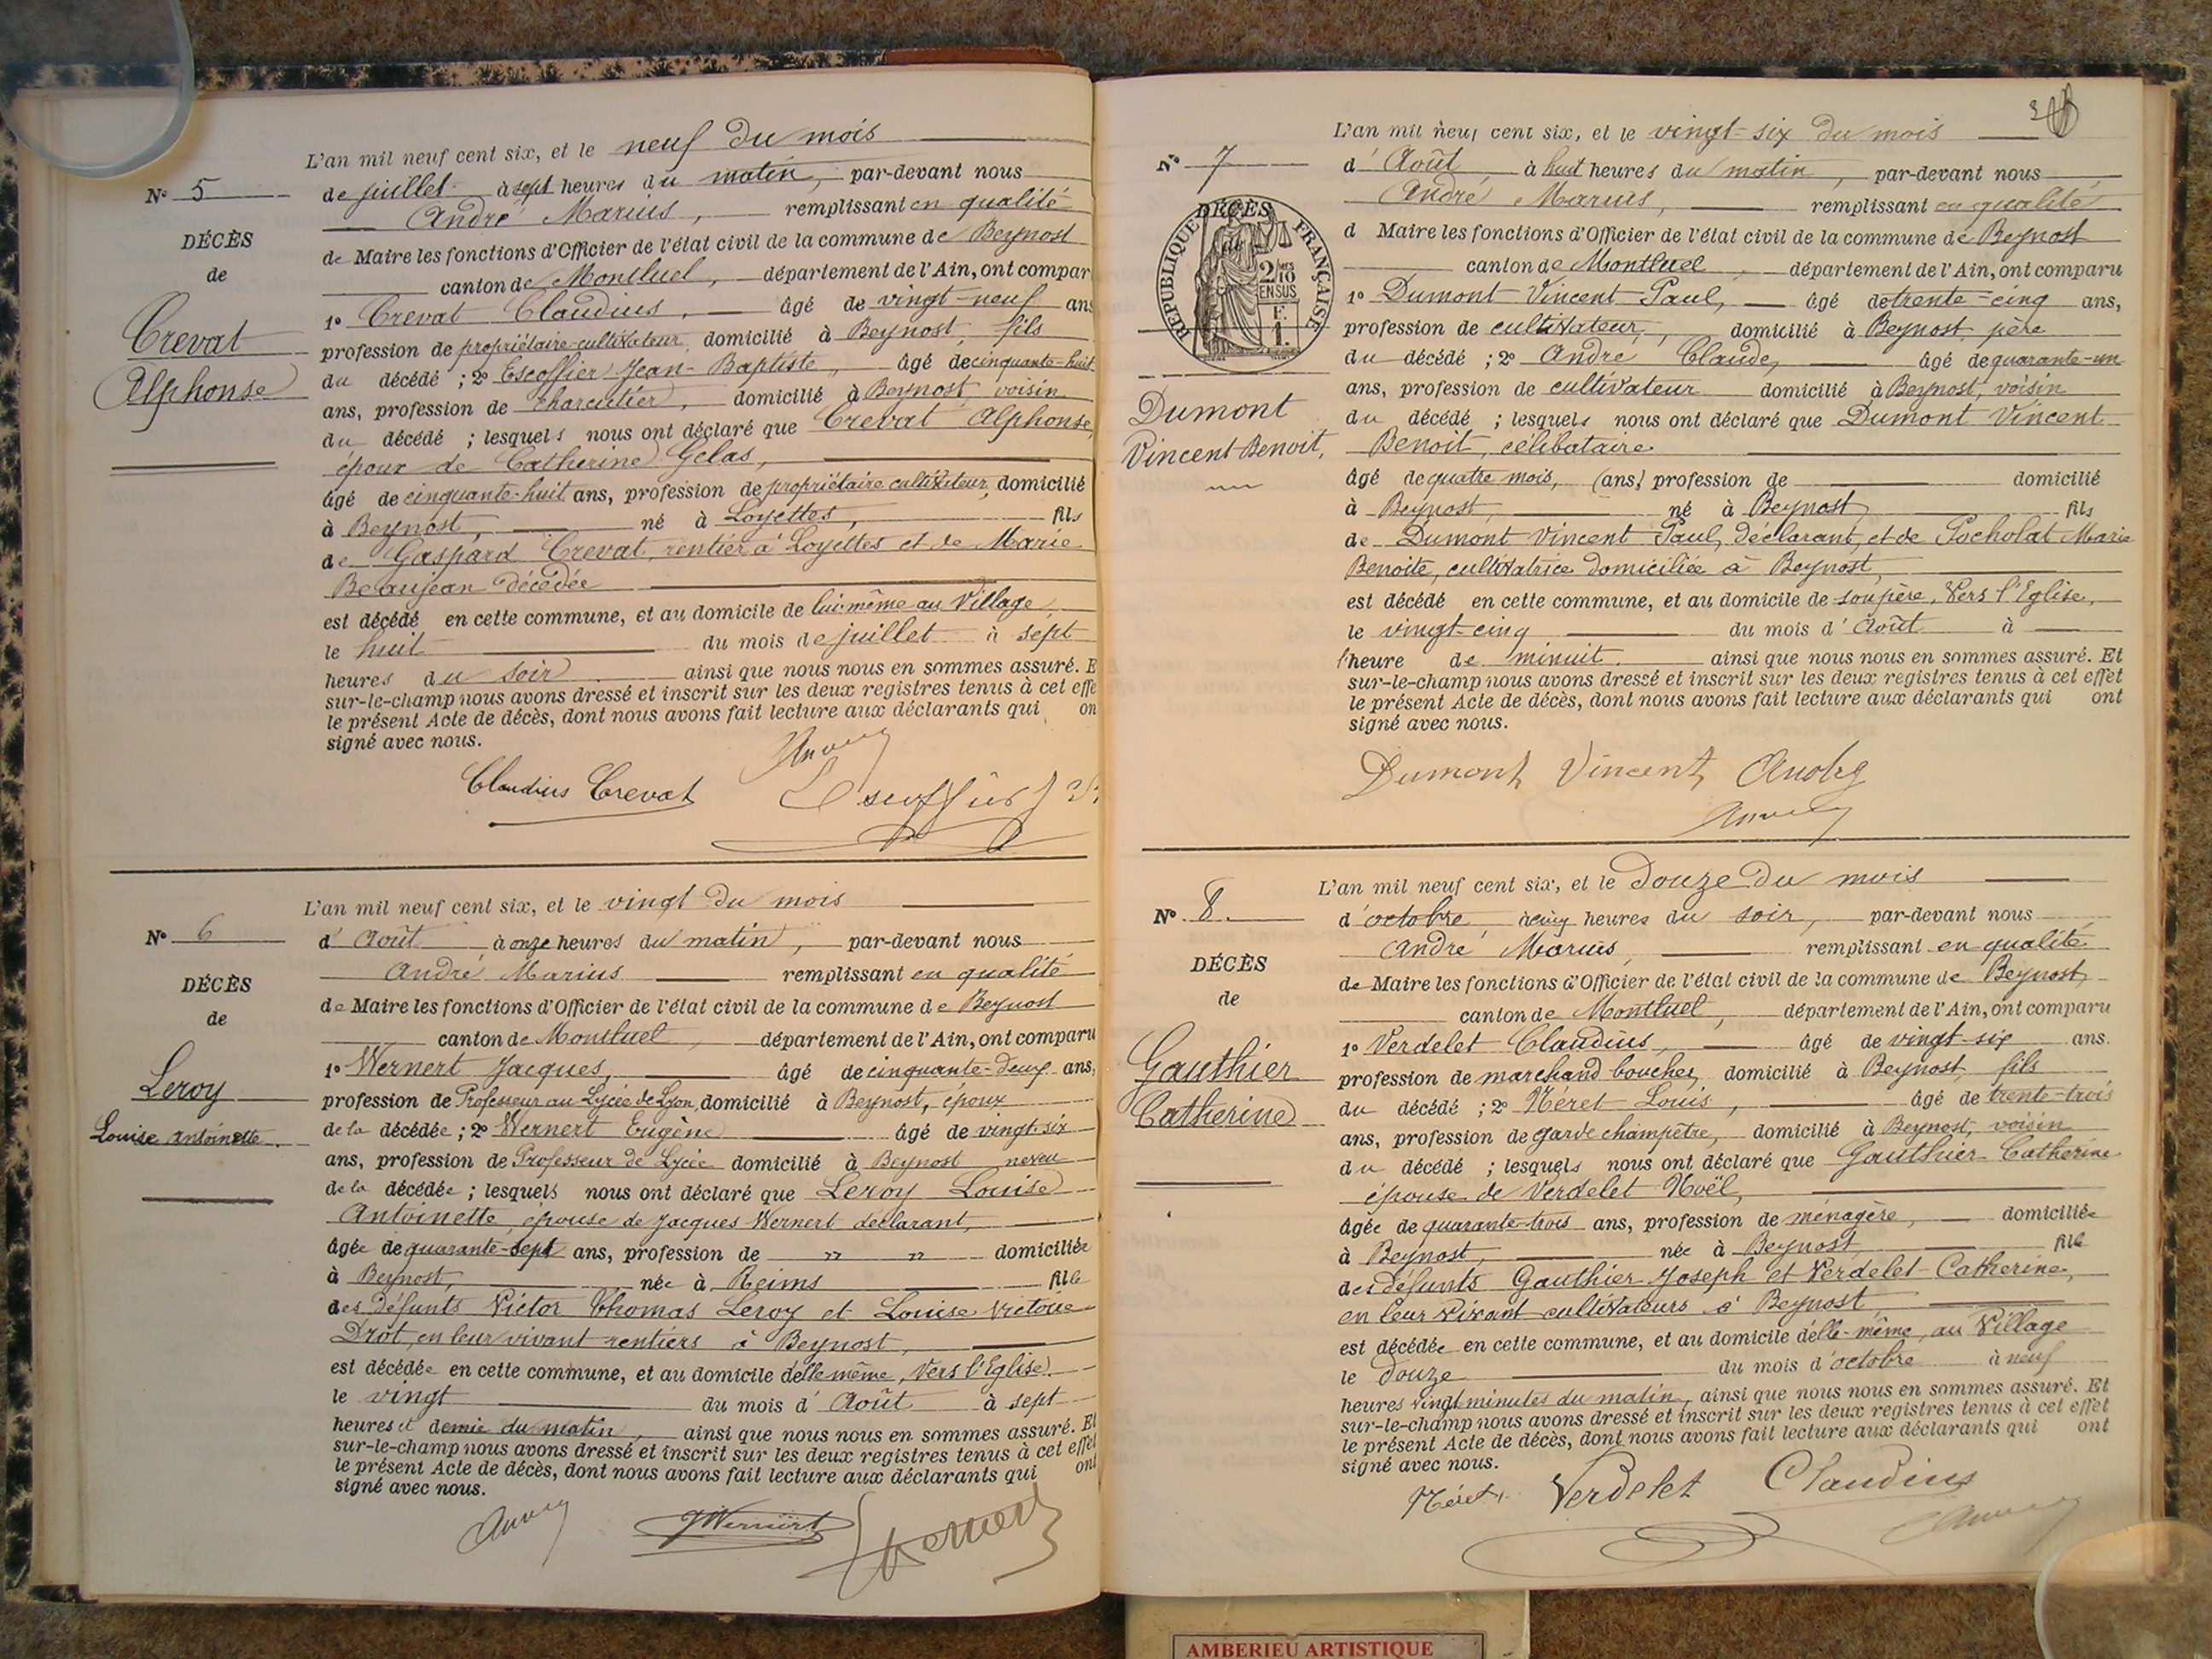 L'an mil neuf cent six, et le neuf du mois
N° 5
de juillet à sept heures du matin, par-devant nous
André Marius, remplissant en qualité
DÉCÈS
de Maire les fonctions d'Officier de l'état civil de la commune de Beynost
de
canton de Montluel, département de l'Ain, ont compar
1° Crevat Claudius, âgé de vingt-neuf ans
Crevat
profession de propriétaire-cultivateur, domicilié à Beynost, fils
du décédé ; 2° Escoffier Jean-Baptiste, âgé de cinquante-huit
Alphonse
ans, profession de charcutier, domicilié à Beynost, voisin
du décédé ; lesquels nous ont déclaré que Crevat Alphonse,
époux de Catherine Gelas,
âgé de cinquante-huit ans, profession de propriétaire cultivateur, domicilié
à Beynost, né à Loyettes, fils
de Gaspard Crevat, rentier à Loyettes et de Marie
Beaujean décédée
est décédé en cette commune, et au domicile de lui-même au Village,
le huit du mois de juillet à sept
heures du soir ainsi que nous nous en sommes assuré. E
sur-le-champ nous avons dressé et inscrit sur les deux registres tenus à cet effe
le présent Acte de décès, dont nous avons fait lecture aux déclarants qui on
signé avec nous.
Claudius Crevat
L'an mil neuf cent six, et le vingt du mois
N° 6
d'Août à onze heures du matin, par-devant nous
André Marius remplissant en qualité
DÉCÈS
de Maire les fonctions d'Officier de l'état civil de la commune de Beynost
de
canton de Montluel, département de l'Ain, ont comparu
1° Wernert Jacques, âgé de cinquante-deux ans,
Leroy
profession de Professeur au Lycée de Lyon, domicilié à Beynost, époux
Louise Antoinette.
de la décédée ; 2° Wernert Eugène âgé de vingt-six
ans, profession de Professeur de Lycée domicilié à Beynost neveu
de la décédée ; lesquels nous ont déclaré que Leroy Louise
Antoinette, épouse de Jacques Wernert déclarant,
âgée de quarante-sept ans, profession de " " domiciliée
à Beynost, née à Reims fille
des défunts Victor Thomas Leroy et Louise Victoire
Drot, en leur vivant rentiers à Beynost,
est décédée en cette commune, et au domicile d'elle même, Vers l'Eglise.
le vingt du mois d'Août à sept
heures et demie du matin, ainsi que nous nous en sommes assuré. Et
sur-le-champ nous avons dressé et inscrit sur les deux registres tenus à cet effet
le présent Acte de décès, dont nous avons fait lecture aux déclarants qui ont
signé avec nous.
JWernert
L'an mil neuf cent six, et le vingt-six du mois
N° 7
d'Août, à huit heures du matin, par-devant nous
André Marius, remplissant en qualité
DÉCÈS
de
RÉPUBLIQUE FRANÇAISE
2/10 EN SUS
F. 1.
d Maire les fonctions d'Officier de l'état civil de la commune de Beynost
canton de Montluel, département de l'Ain, ont comparu
1° Dumont Vincent Paul, âgé de trente-cinq ans,
profession de cultivateur, domicilié à Beynost, père
du décédé ; 2° André Claude, âgé de quarante-un
ans, profession de cultivateur domicilié à Beynost, voisin
Dumont
du décédé ; lesquels nous ont déclaré que Dumont Vincent
Vincent Benoit,
Benoit, célibataire
âgé de quatre mois, (ans) profession de domicilié
à Beynost, né à Beynost, fils
de Dumont Vincent Paul, déclarant, et de Pocholat Marie
Benoite, cultivatrice domiciliée à Beynost,
est décédé en cette commune, et au domicile de son père, Vers l'Eglise,
le vingt-cinq du mois d'Août à
l'heure de minuit ainsi que nous nous en sommes assuré. Et
sur-le-champ nous avons dressé et inscrit sur les deux registres tenus à cet effet
le présent Acte de décès, dont nous avons fait lecture aux déclarants qui ont
signé avec nous.
Dumont Vincent André
L'an mil neuf cent six, et le douze du mois
N° 8.
d'octobre, à cinq heures du soir, par-devant nous
André Marius, remplissant en qualité
DÉCÈS
de Maire les fonctions d'Officier de l'état civil de la commune de Beynost,
de
canton de Montluel, département de l'Ain, ont comparu
1° Verdelet Claudius, âgé de vingt-six ans.
Gauthier
profession de marchand boucher, domicilié à Beynost, fils
du décédé ; 2° Néret Louis, âgé de trente-trois
Catherine
ans, profession de garde champêtre, domicilié à Beynost, voisin
du décédé ; lesquels nous ont déclaré que Gauthier Catherine
épouse de Verdelet Noël,
âgée de quarante-trois ans, profession de ménagère, domiciliée
à Beynost, née à Beynost, fille
des défunts Gauthier Joseph et Verdelet Catherine,
en leur vivant cultivateurs à Beynost,
est décédée en cette commune, et au domicile d'elle-même, au Village
le douze du mois d'octobre à neuf
heures vingt minutes du matin, ainsi que nous nous en sommes assuré. Et
sur-le-champ nous avons dressé et inscrit sur les deux registres tenus à cet effet
le présent Acte de décès, dont nous avons fait lecture aux déclarants qui ont
signé avec nous.
Néret, Verdelet Claudius
AMBERIEU ARTISTIQUE